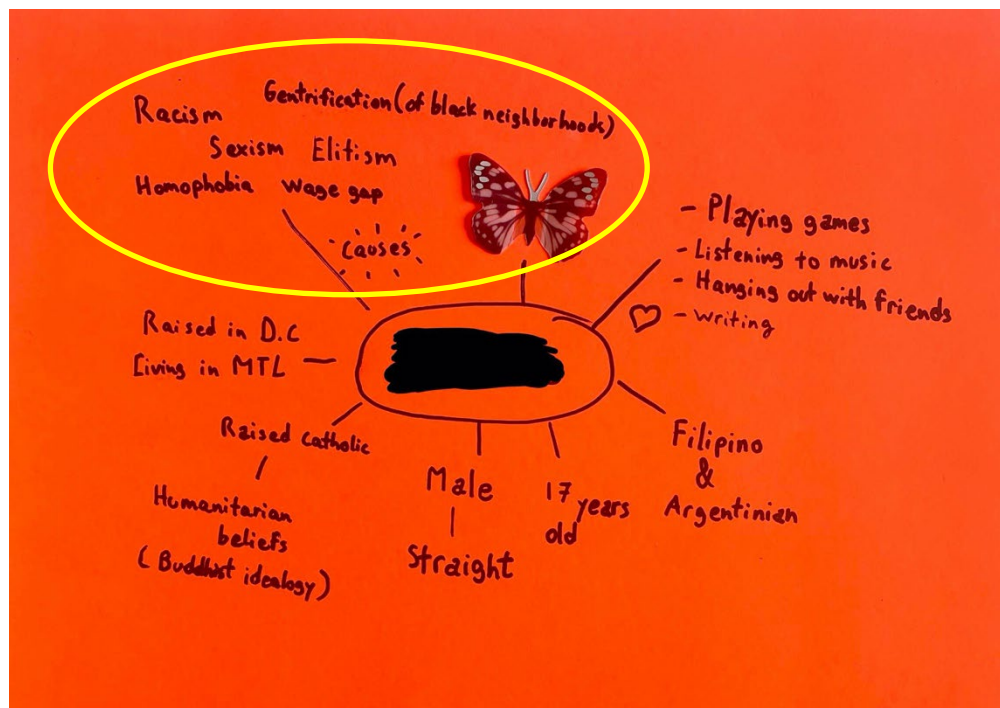 Gentrification (of black neighborhoods)
Racism
Sexism Elitism
Homophobia wage gap
Causes
- Playing games
- Listening to music
- Hanging out with friends
- writing
Raised in D.C
Living in MTL
Raised Catholic
Humanitarian
beliefs
(Buddhist idealogy)
Male
Straight
17
years
old
Filipino
&
Argentinian